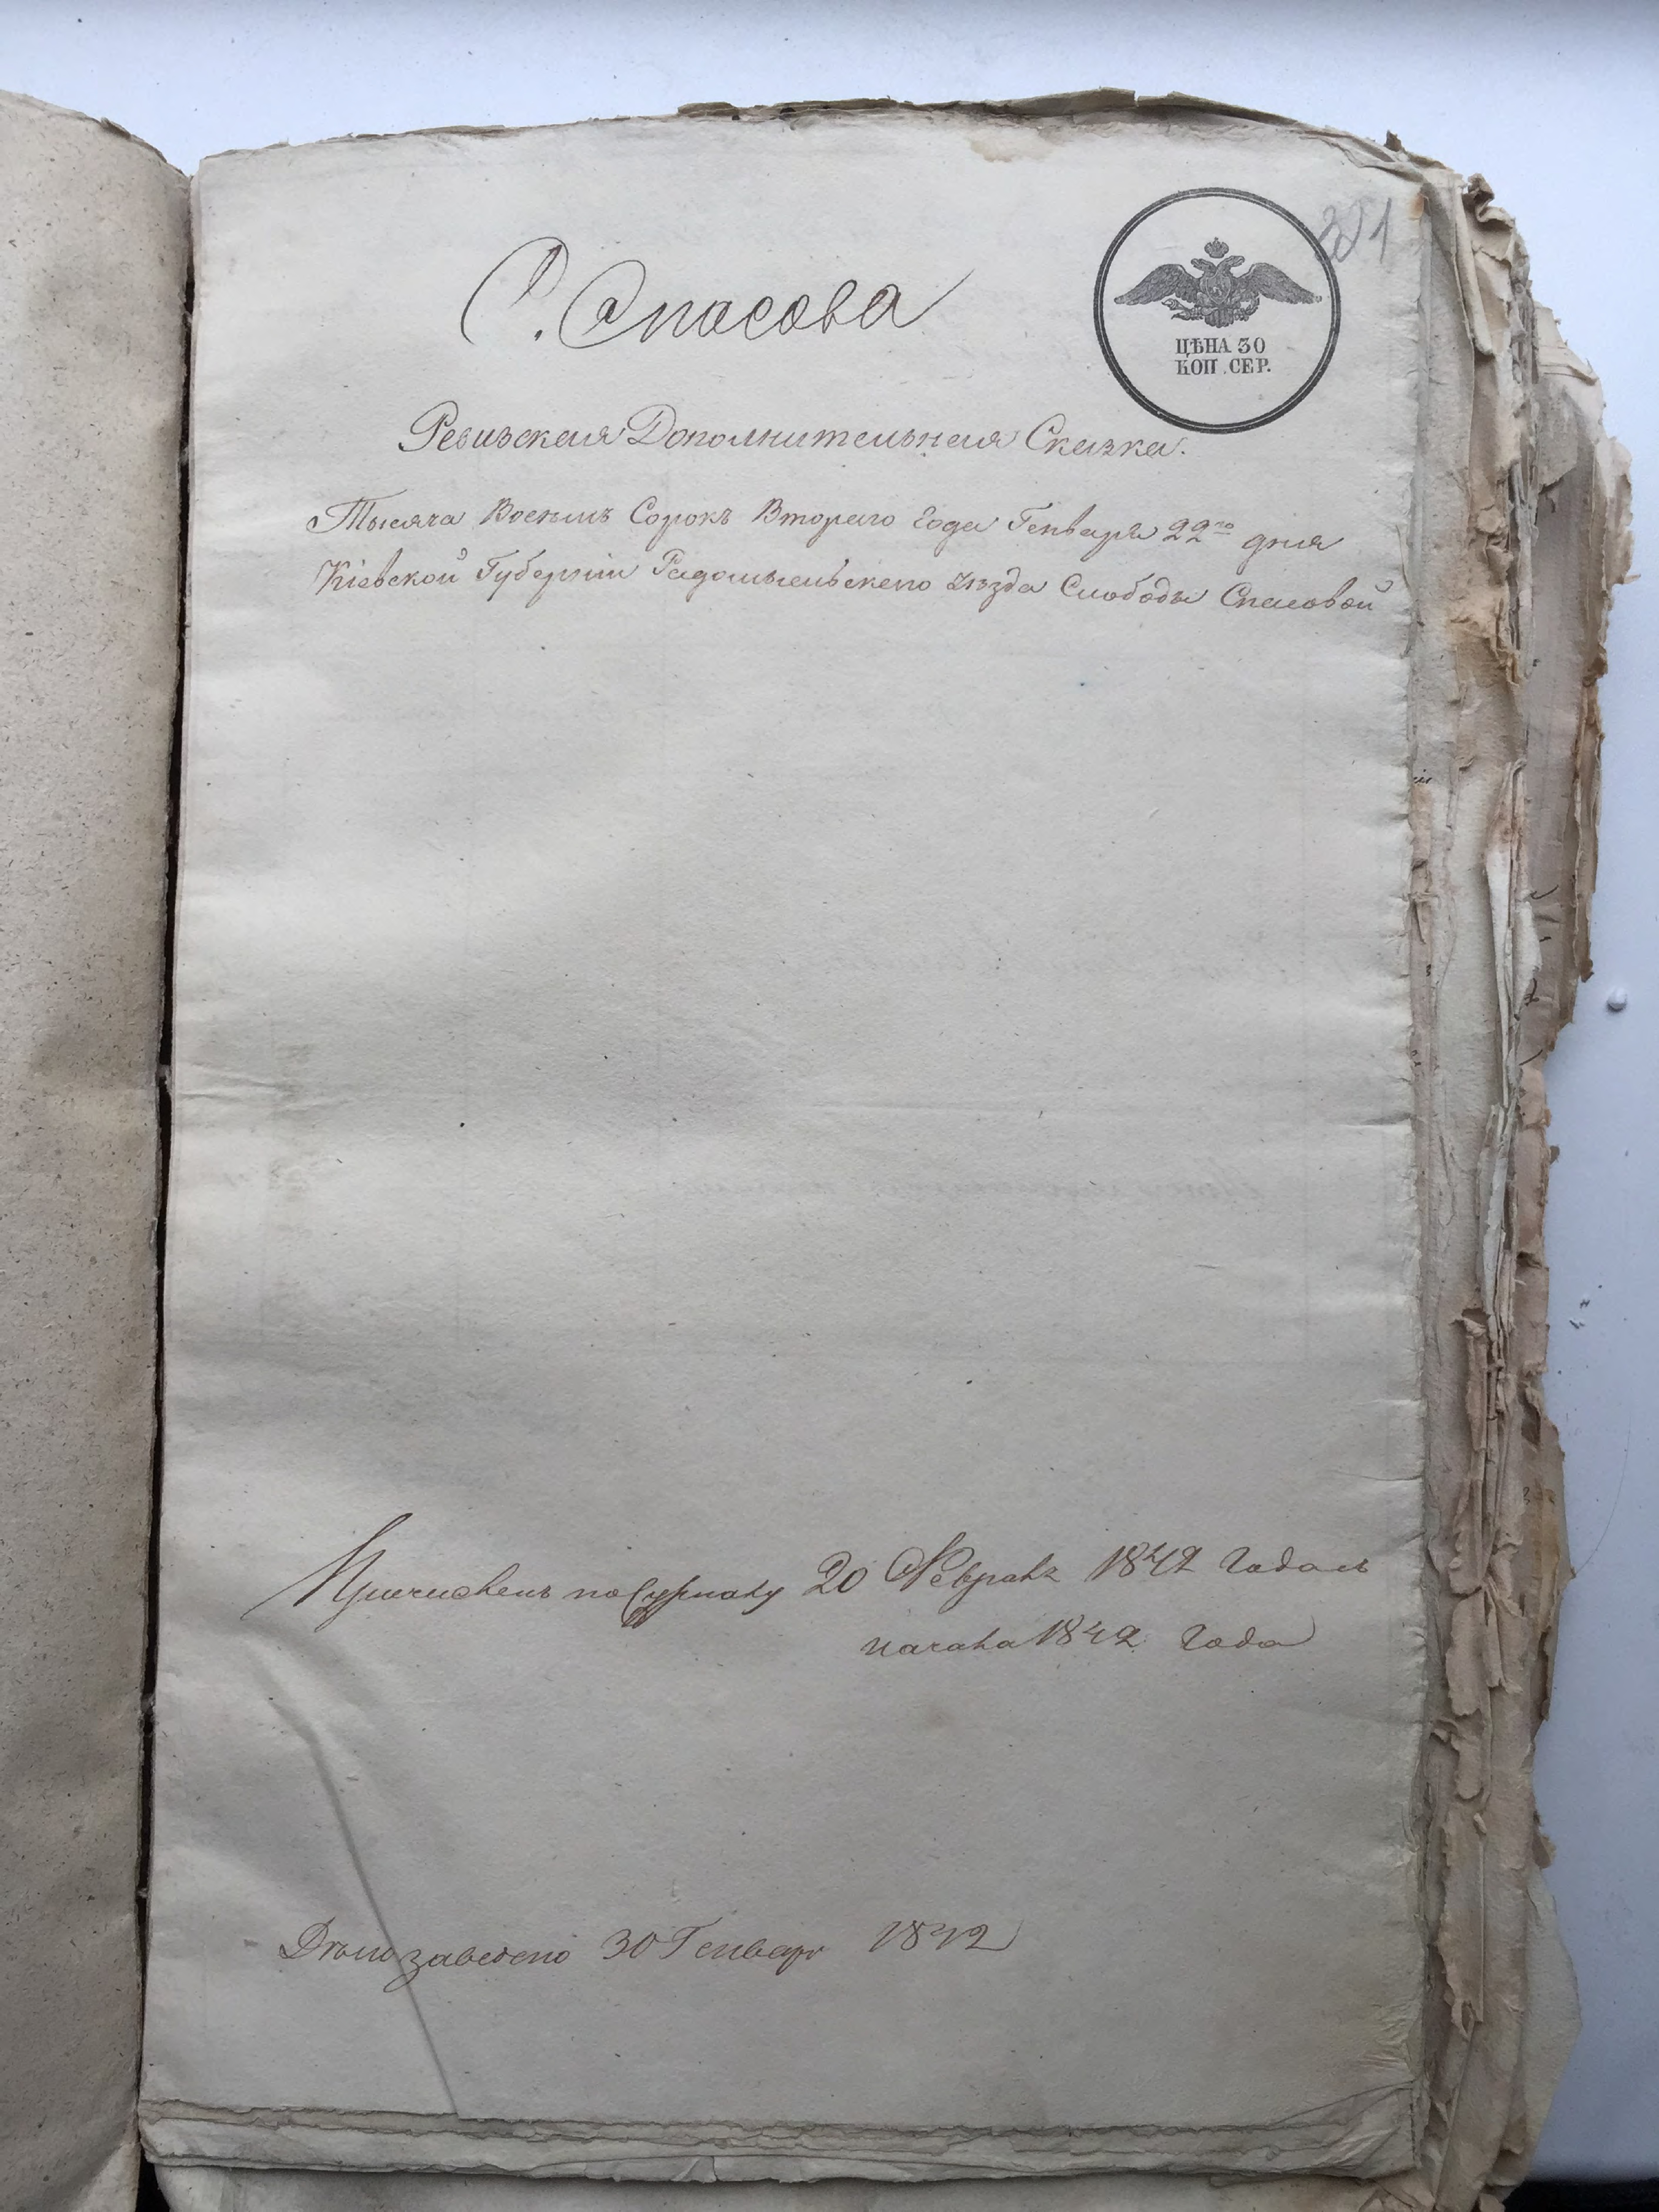 С. Спасова
ЦѢНА 30
КОП. СЕР.
Ревизская Дополнительная Сказка.
Тысяча Восемь Сорокъ Втораго Года Генваря 22го дня
Кіевской Губерніи Радомысльскаго Уѣзда Слободы Спасовой
Причисленъ по Журналу 20 Февраля 1842 Года съ
начала 1842 Года
Дѣло заведено 30 Генваря 1842